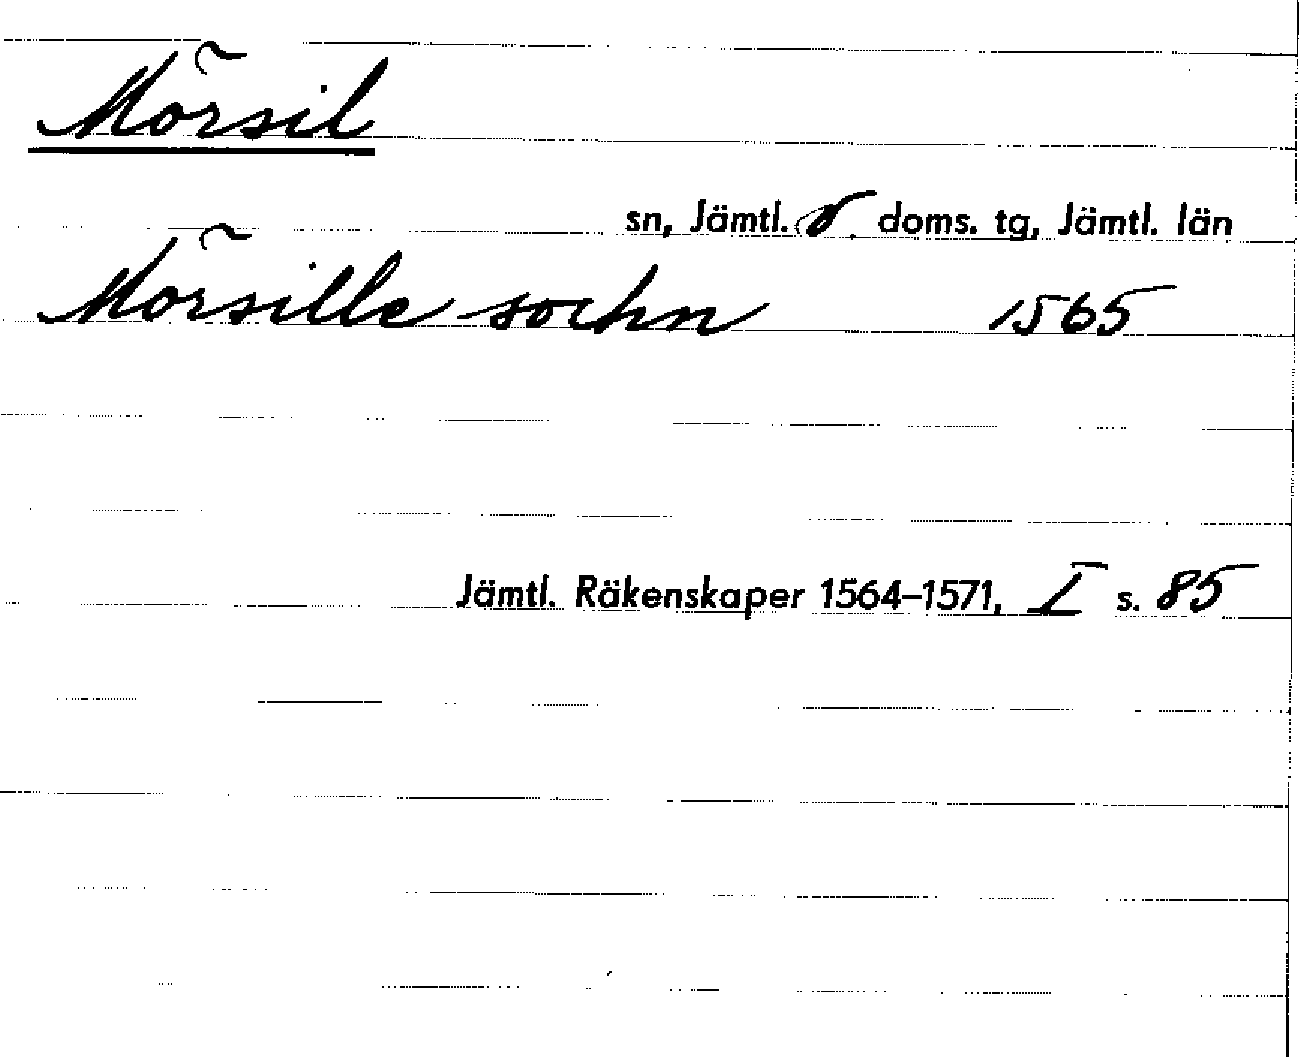 Mörsil
sn, Jämtl. v. doms. tg, Jämtl. län
Mörsille sochn 1565
Jämtl. Räkenskaper 1564–1571, I s. 85